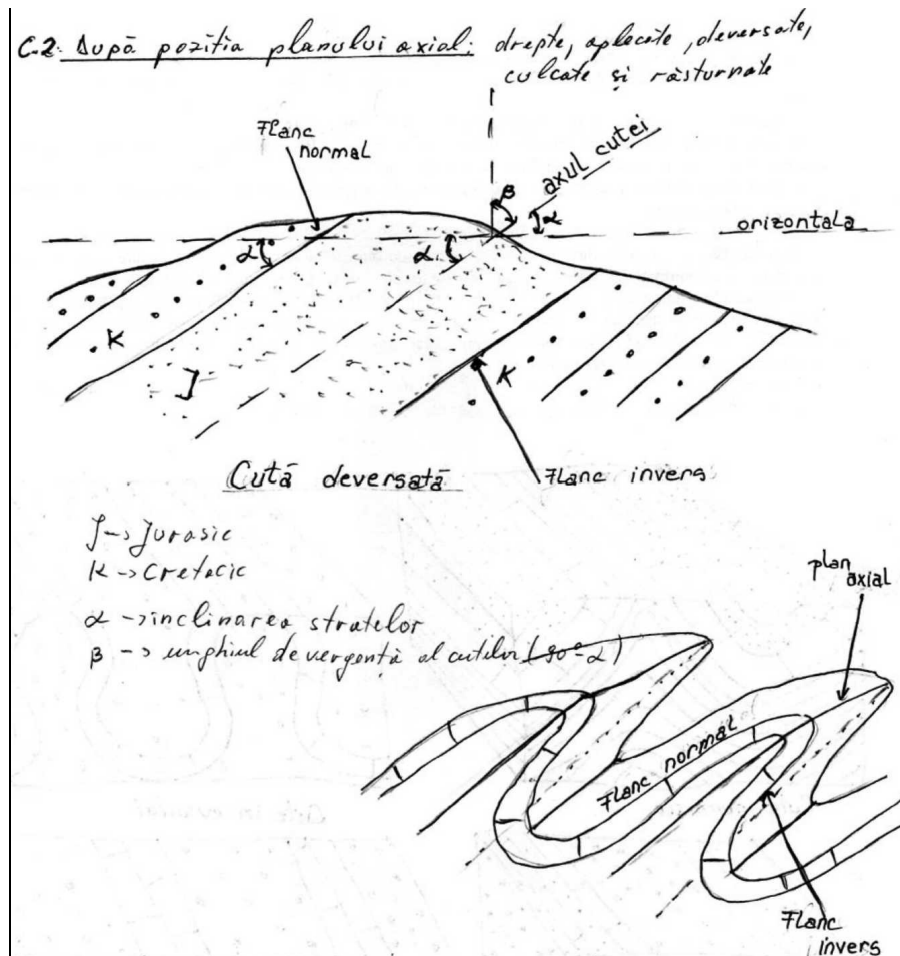 C.2. După poziția planului axial: drepte, aplecate, deversate,
culcate și răsturnate
Flanc
normal
β
axul cutei
α
orizontala
α
α
K
J
K
Cută deversată
Flanc invers
J → Jurasic
K → Cretacic
α → inclinarea stratelor
β → unghiul de vergență al cutelor (90°-α)
plan
axial
Flanc normal
Flanc
invers